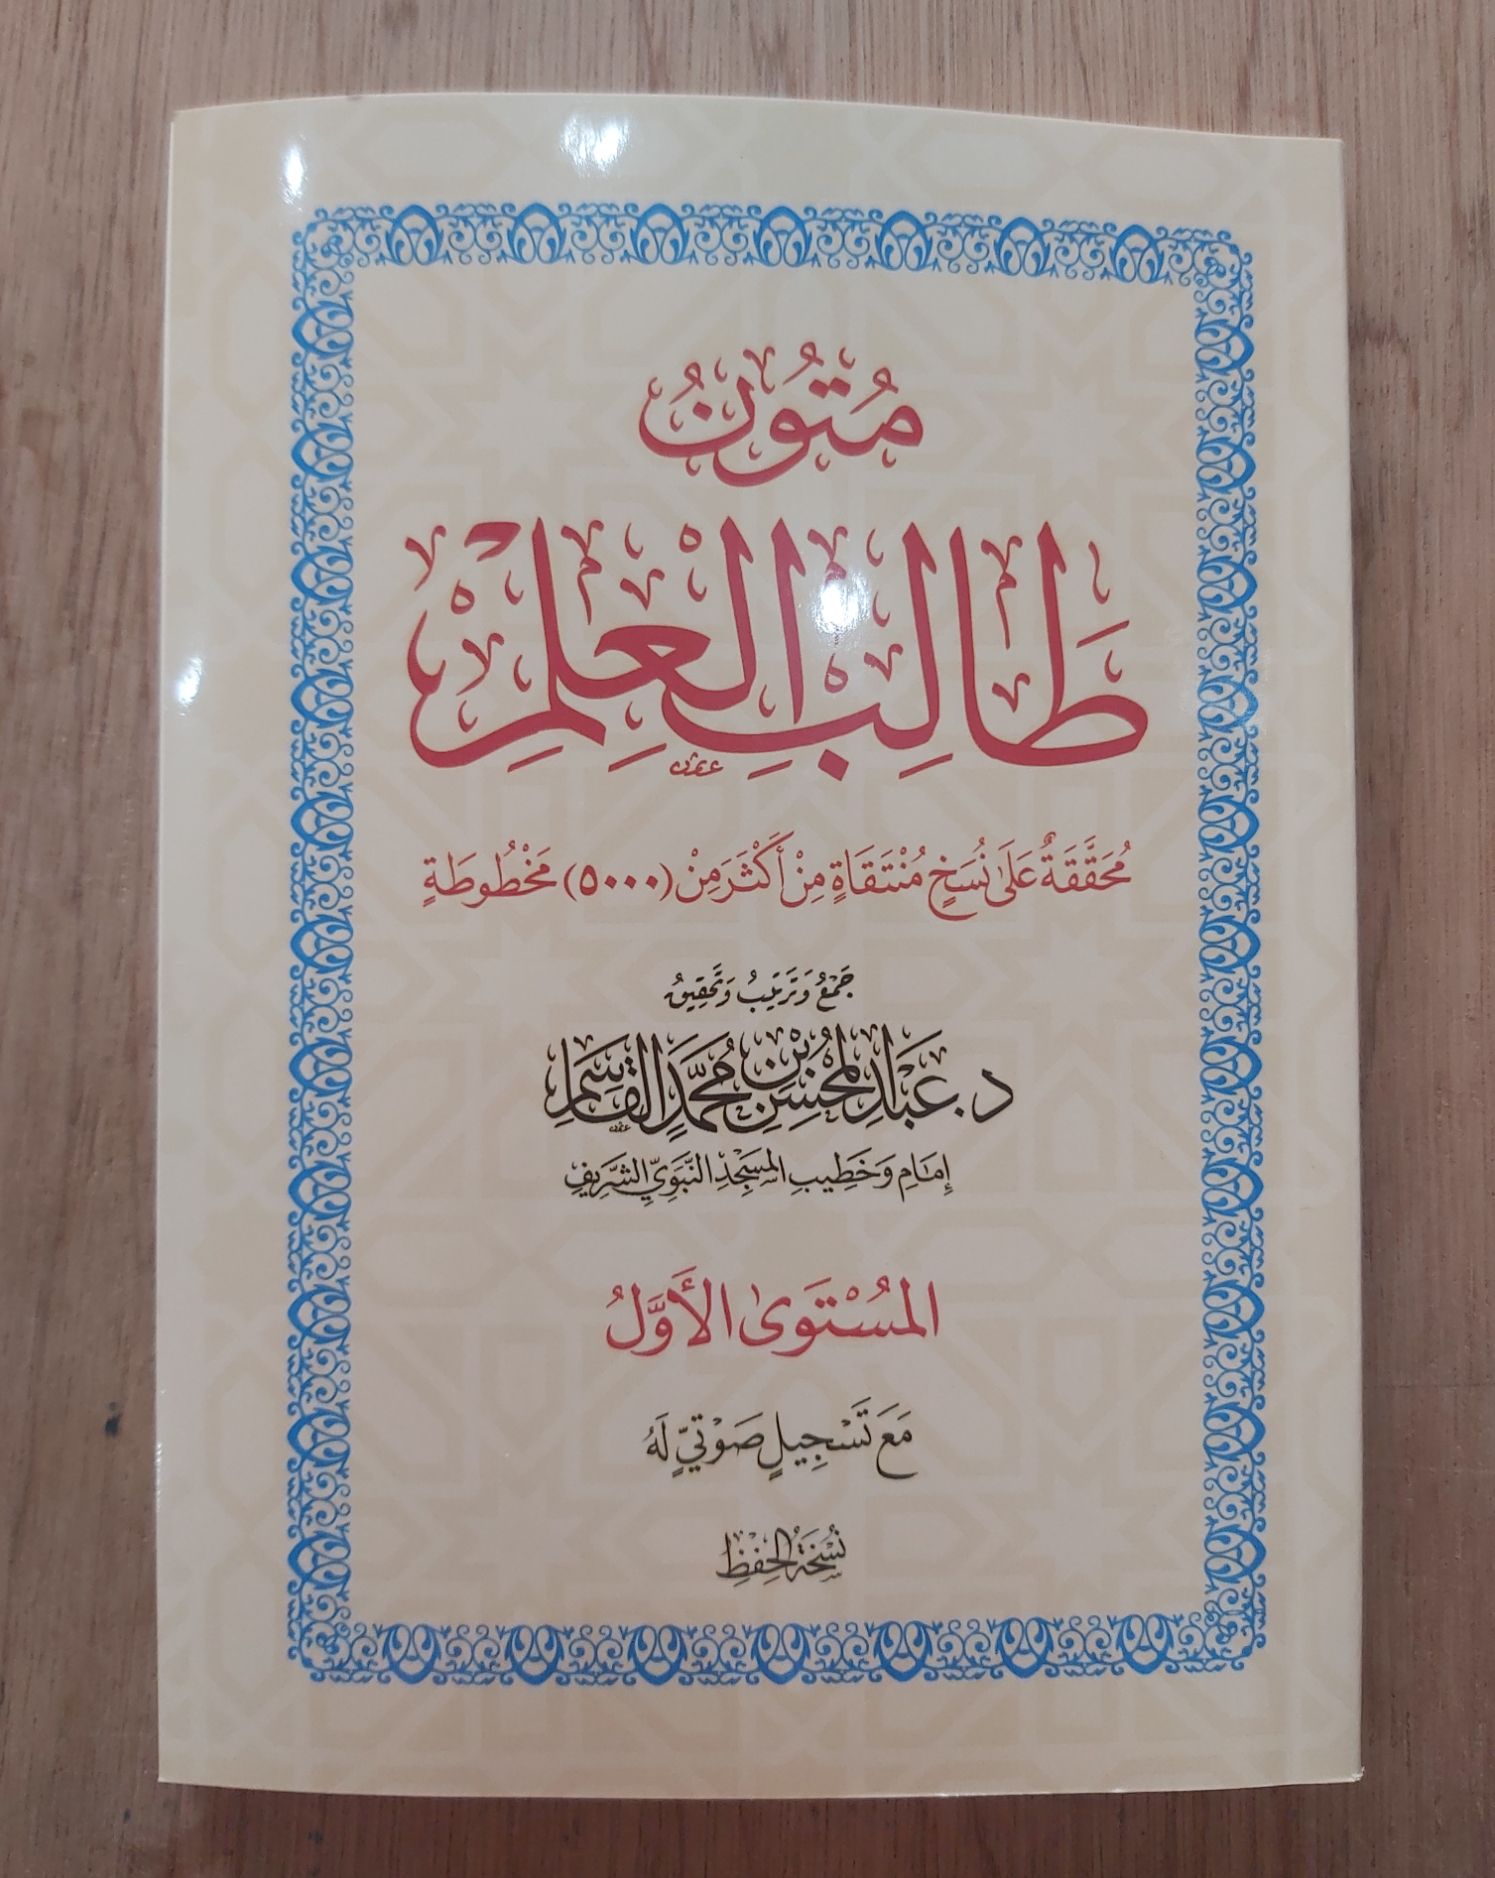 مُتُونُ
طَالِبِ الْعِلْمِ
مُحَقَّقَةٌ عَلَى نُسَخٍ مُنْتَقَاةٍ مِنْ أَكْثَرَ مِنْ (٥٠٠٠) مَخْطُوطَةٍ
جَمْعُ وَتَرْتِيبُ وَتَحْقِيقُ
د. عَبْدِ الْمُحْسِنِ بْنِ مُحَمَّدٍ الْقَاسِمِ
إِمَامِ وَخَطِيبِ الْمَسْجِدِ النَّبَوِيِّ الشَّرِيفِ
الْمُسْتَوَى الْأَوَّلُ
مَعَ تَسْجِيلٍ صَوْتِيٍّ لَهُ
نُسْخَةُ الْحِفْظِ